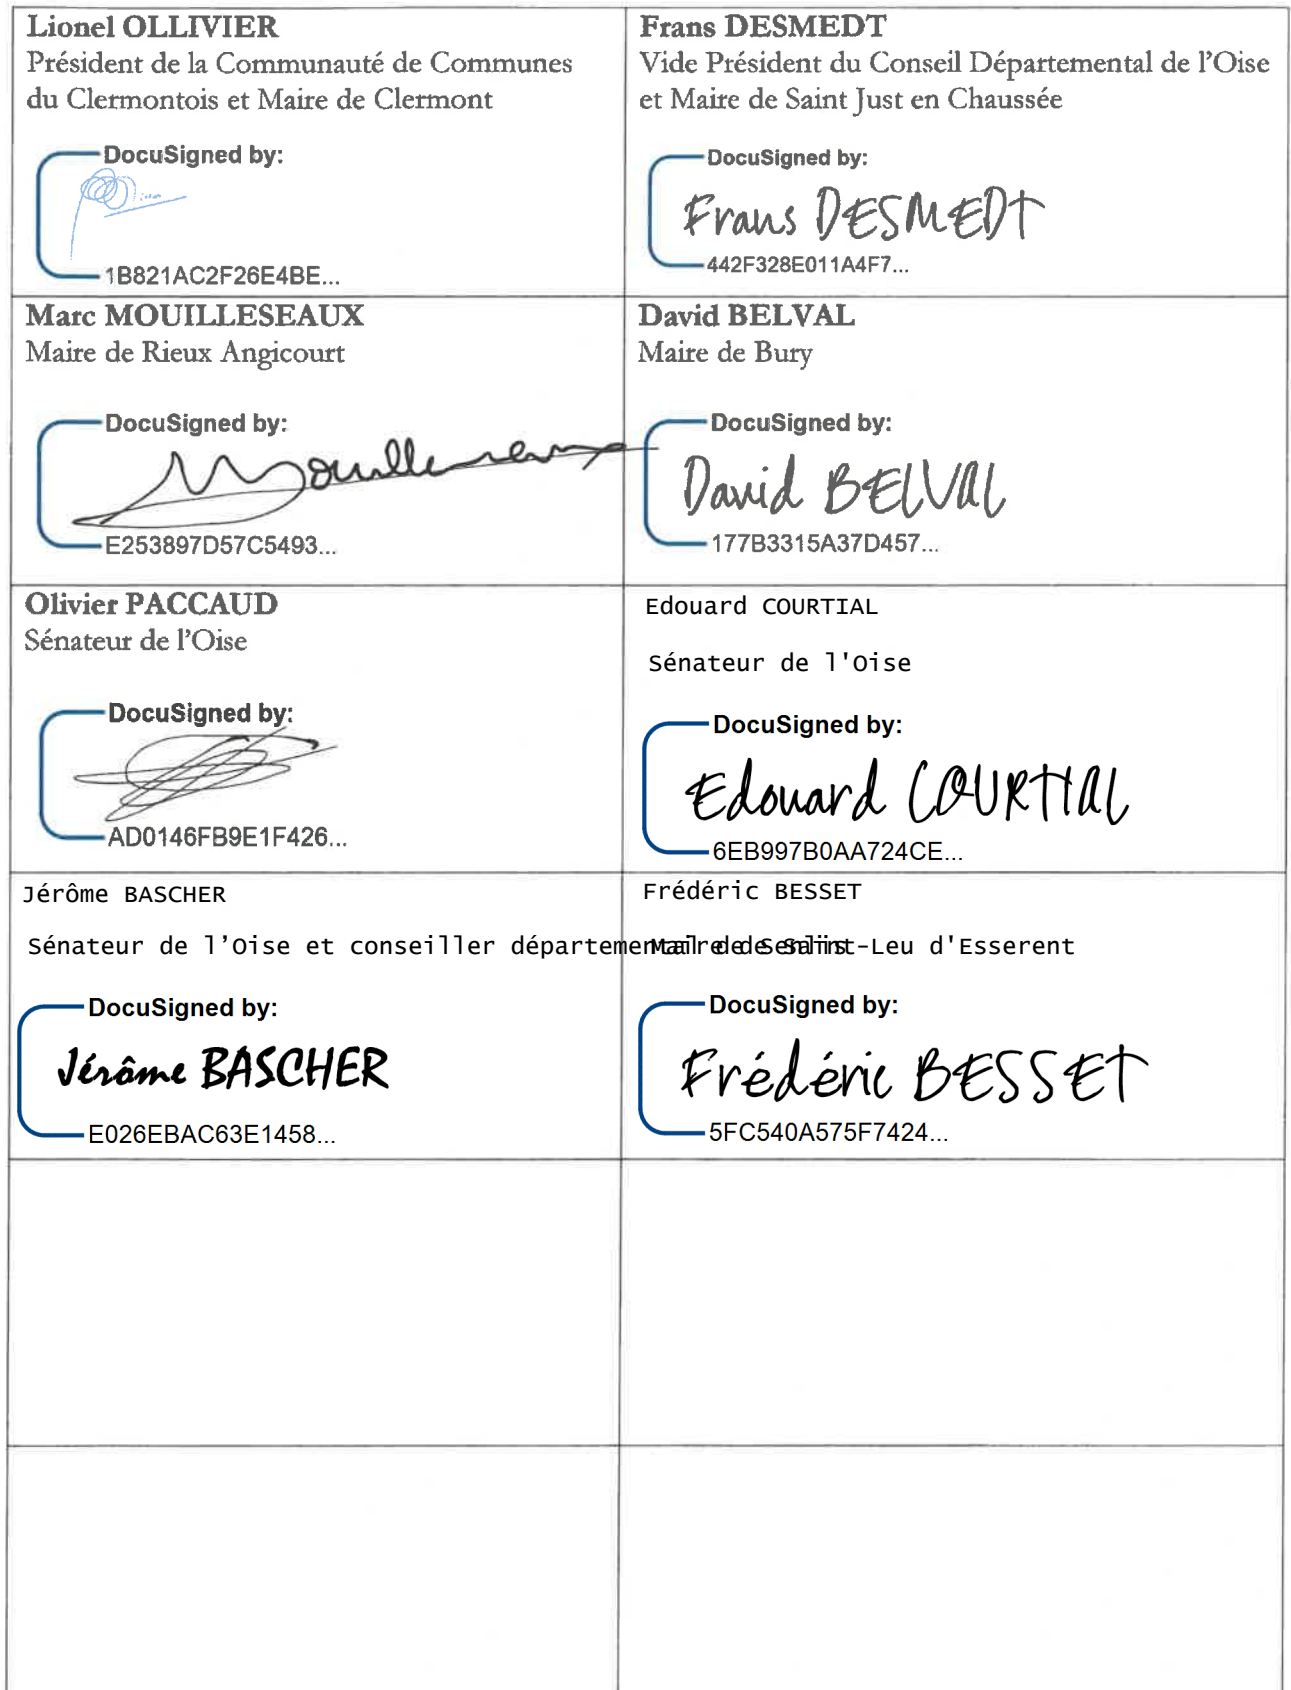 Lionel OLLIVIER
Président de la Communauté de Communes
du Clermontois et Maire de Clermont
DocuSigned by:
1B821AC2F26E4BE...
Frans DESMEDT
Vide Président du Conseil Départemental de l'Oise
et Maire de Saint Just en Chaussée
DocuSigned by:
Frans DESMEDT
442F328E011A4F7...
Marc MOUILLESEAUX
Maire de Rieux Angicourt
DocuSigned by:
E253897D57C5493...
David BELVAL
Maire de Bury
DocuSigned by:
David BELVAL
177B3315A37D457...
Olivier PACCAUD
Sénateur de l'Oise
DocuSigned by:
AD0146FB9E1F426...
Edouard COURTIAL
Sénateur de l'Oise
DocuSigned by:
Edouard COURTIAL
6EB997B0AA724CE...
Jérôme BASCHER
Sénateur de l'Oise et conseiller départemental de Senlis
DocuSigned by:
Jérôme BASCHER
E026EBAC63E1458...
Frédéric BESSET
Maire de Saint-Leu d'Esserent
DocuSigned by:
Frédéric BESSET
5FC540A575F7424...